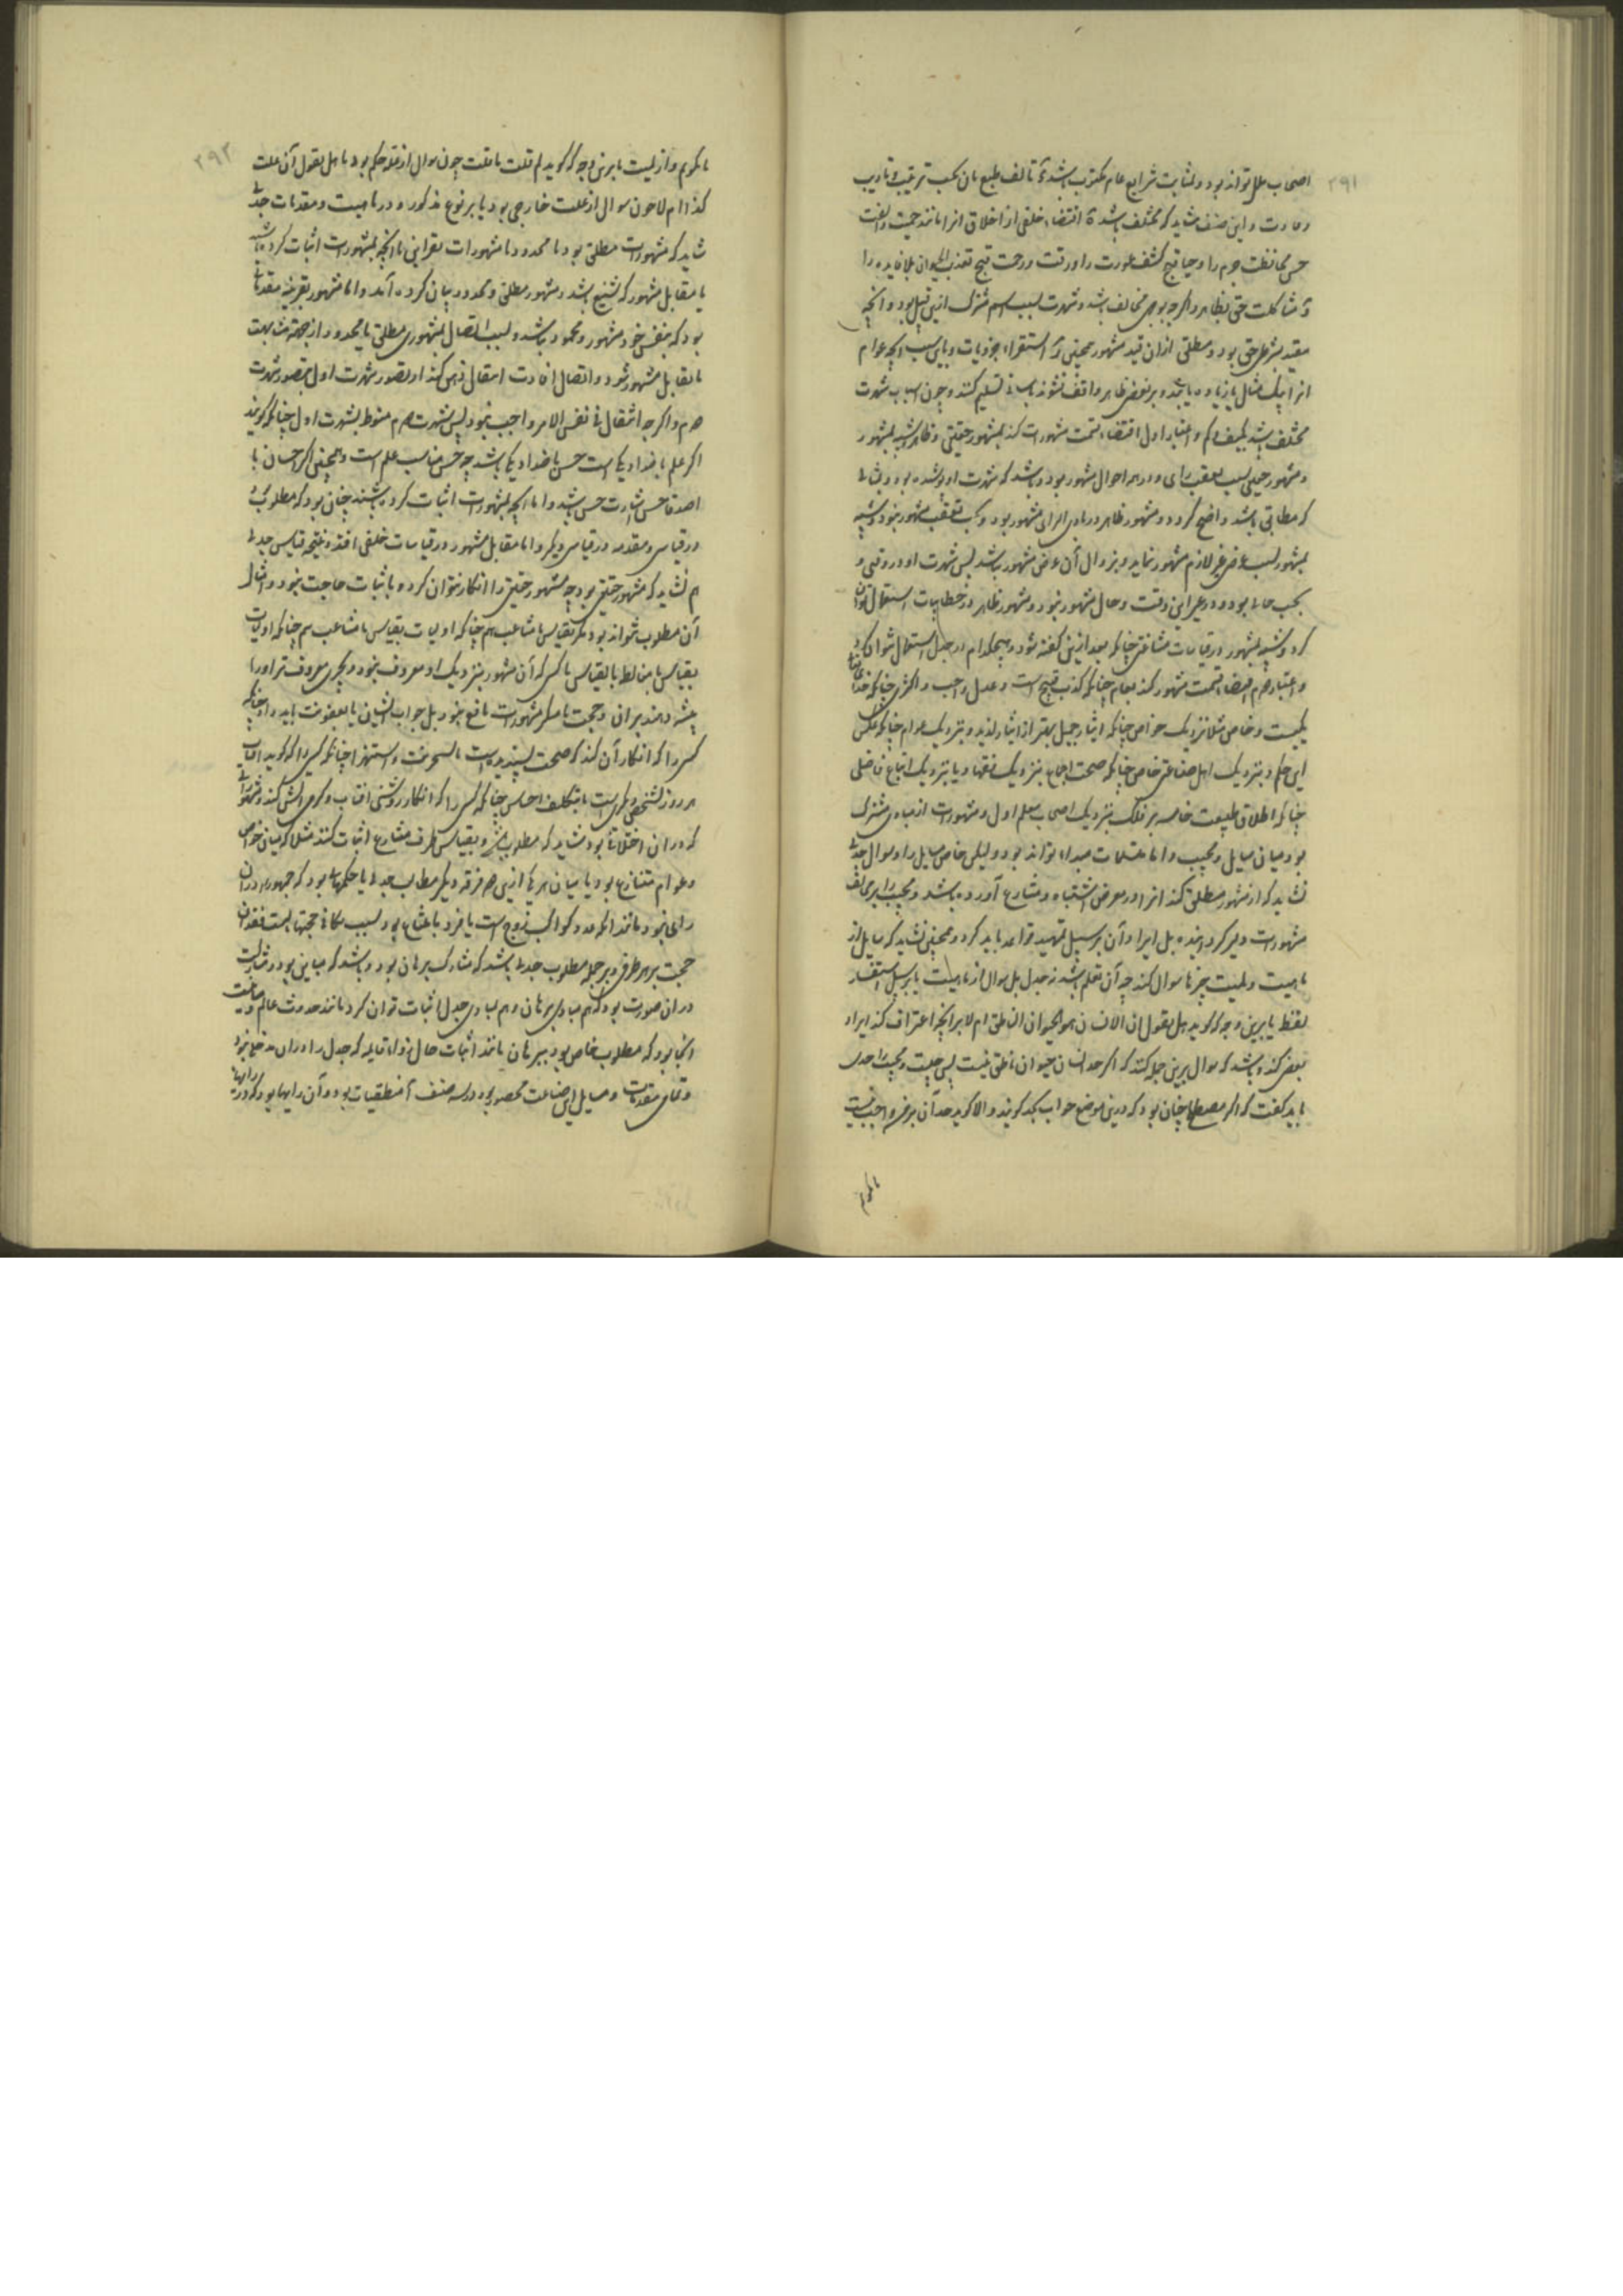 ۲۹۱
اصحاب ملل تواند بود و بمثابت شرایع عام مکتوب باشد تألف طبع بآن بحسب تربیت و تادیب
و عادت و این صنف شاید که مختلف باشد اقتضاء خلقی از اخلاق انرا مانند حمیت و انفت
حسن محافظت حرم را و حیا قبح کشف عورت را و رقت و رحمت قبح تعذیب الحیوان بلا فایده را
مشاکلت حق بظاهر و اگرچه بوجهی مخالف باشد و شهرت بسبب اسم مشترک ازین قبیل بود و آنچه
مقید بشرطی حق بود و مطلق ازان قید مشهور همچنین استقراء جزویات و باین سبب آنچه عوام
انرا بیک مثال یا زیاده یابند و بر نقض ظاهر واقف نشوند بآسانی تسلیم کنند و چون اسباب شهرت
مختلف باشد بکیف و کم و اعتبار اول اقتضاء قسمت مشهورات کند بمشهور حقیقی و ظاهر و شبیه بمشهور
و مشهور حقیقی بسبب تعقب رای و در همه احوال مشهور بود و باشد که شهرت او
که مطابق باشد واضح گردد و مشهور ظاهر در بادی الرای مشهور بود و بحسب تعقب مشهور نبود و شبیه
بمشهور بسبب عرضی غیر لازم مشهور نماید و بزوال آن عرض مشهور نباشد پس شهرت او در وقتی و
بحسب حالی بود و در غیر این وقت و حال مشهور نبود و مشهور ظاهر در خطابیات استعمال توان
کرد و شبیه بمشهور در قیاسات مشاغبی چنانکه بعد ازین گفته شود و هیچکدام در جدل استعمال نتوان کرد
و اعتبار دوم اقتضاء قسمت مشهور کند بعام چنانکه کذب قبیح است و عدل واجب و اکثری چنانکه خدای تعالی
یکیست و خاص مثلا نزدیک خواص چنانکه ایثار جمیل بهتر از ایثار لذیذ و نزدیک عوام چنانکه عکس
این حکم و نزدیک اهل صناعتی خاص چنانکه صحت اجماع نزدیک فقها و یا نزدیک اتباع فاضلی
چنانکه اطلاق طبیعت خامسه بر فلک نزدیک اصحاب معلم اول و مشهورات از مبادی مشترک
بود میان سایل و مجیب و اما مسلمات مبداء تواند بود ولیکن خاص سایل را و سوال جدلی
نشاید که از مشهور مطلق کند انرا در معرض اشتباه و متنازع آورده باشد و مجیب را بر مخالفت
مشهورات دلیر کرداننده بل ایراد آن بر سبیل تمهید قواعد باید کرد و همچنین نشاید که سایل از
ماهیت و لمیت چیزها سوال کند چه آن تعلم باشد نه جدل بل سوال از ماهیت یا بر سبیل استفسار
لفظ یا برین وجه که گوید هل تقول ان الانسان هو الحیوان الناطق ام لا بر آنچه اعتراف کند ایراد
نقض کند و باشد که سوال برین جمله کنند که اگر حد انسان حیوان ناطق نیست پس چیست و مجیب را حدی
باید گفت که اگر مصطلح چنان بود که درین موضع جواب بحد گویند والا گوید حد آن بر من واجب نیست
تا بگویم
۲۹۲
تا بگویم و از لمیت یا برین وجه که گوید لم قلت ما قلت چون سوال از علت حکم بود یا هل تقول آن علت
کذا ام لا چون سوال از علت خارجی بود یا بر نوع مذکور و در ماهیت و مقدمات جدلی
شاید که مشهورات مطلق بود یا محدود یا مشهورات بقراین یا آنچه بمشهورات اثبات کرده باشند
یا مقابل مشهور که شنیع باشد و مشهور مطلق و محدود بیان کرده آمد و اما مشهور بقرینه مقدماتی
بود که بنفس خود مشهور و محمود نباشد و بسبب اتصال بمشهوری مطلق یا محدود از جهت مشابهت
یا تقابل مشهور شود و اتصال افادت انتقال ذهن کند از تصور شهرت اول بتصور شهرت
دوم و اگرچه انتقال فی نفس الامر واجب نبود پس شهرت دوم منوط بشهرت اول چنانکه گویند
اگر علم باضداد یکی است حس باضداد یکی باشد چه حس مناسب علم است و همچنین اگر احسان با
اصدقا حسن اشارت حسن باشد و اما آنچه بمشهورات اثبات کرده باشند چنان بود که مطلوب
در قیاس و مقدمه در قیاس دیگر و اما مقابل مشهور در قیاسات خلفی افتد و نتیجه قیاس جدلی
هم نشاید که مشهور حقیقی بود چه مشهور حقیقی را انکار نتوان کرد و باثبات حاجت نبود و امثال
آن مطلوب نتواند بود مگر بقیاس با مشاغب هم چنانکه اولیات بقیاس با مشاغب هم چنانکه اولیات
بقیاس با مغالط یا بقیاس با کسی که آن مشهور نزدیک او معروف نبود و بچیزی معروف‌تر او را
تنبیه دهند بران و حجت با منکر مشهورات نافع نبود بل جواب ایشان یا بعقوبت باید داد چنانکه
کسی را که انکار آن کند که صحت پسندیده است یا بسخریت و استهزا چنانکه کسی را که گوید آفتاب
هر روز شخصی دیگر است یا بتکلیف احساس چنانکه کسی را که انکار روشنی آفتاب و گرمی آتش کند و مشهوراتی
که دران اختلافی بود شاید که مطلوب باشد و بقیاس طرف متنازع اثبات کنند مثلا که میان خواص
و عوام متنازع بود یا میان هر یکی ازین دو فرقه و دیگر مطالب جدلی یا حکمهائی بود که جمهور را دران
رای نبود مانند آنکه عدد کواکب زوج است یا فرد یا ممتنع بود بسبب تکافی حجتها یا بسبب فقدان
حجت بر هر طرفی و بر جمله مطلوب جدلی باشد که مشارک برهان بود و باشد که مباین بود و مشارکت
دران صورت بود که هم بمبادی برهان و هم بمبادی جدل اثبات توان کرد مانند حدوث عالم و مباینت
آنجا بود که مطلوب خاص بود ببرهان مانند اثبات حال زوایا قایمه که جدل را دران مدخلی نبود
و تمامی مقدمات و مسایل این صناعت محصور بود در سه صنف آ منطقیات بود و آن رایها بود که در رایها